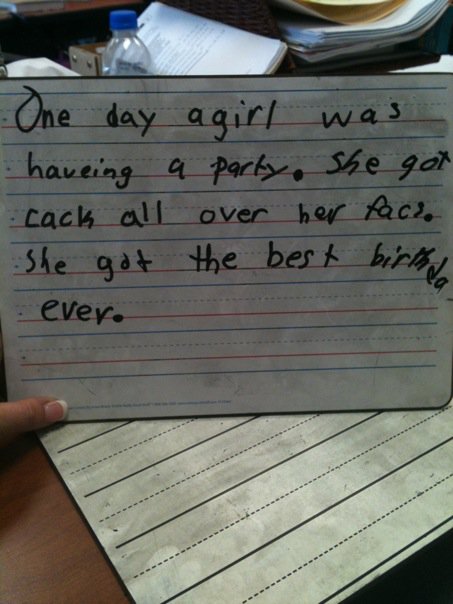 One day a girl was
haveing a party. She got
cack all over her face.
She got the best birthda
ever.